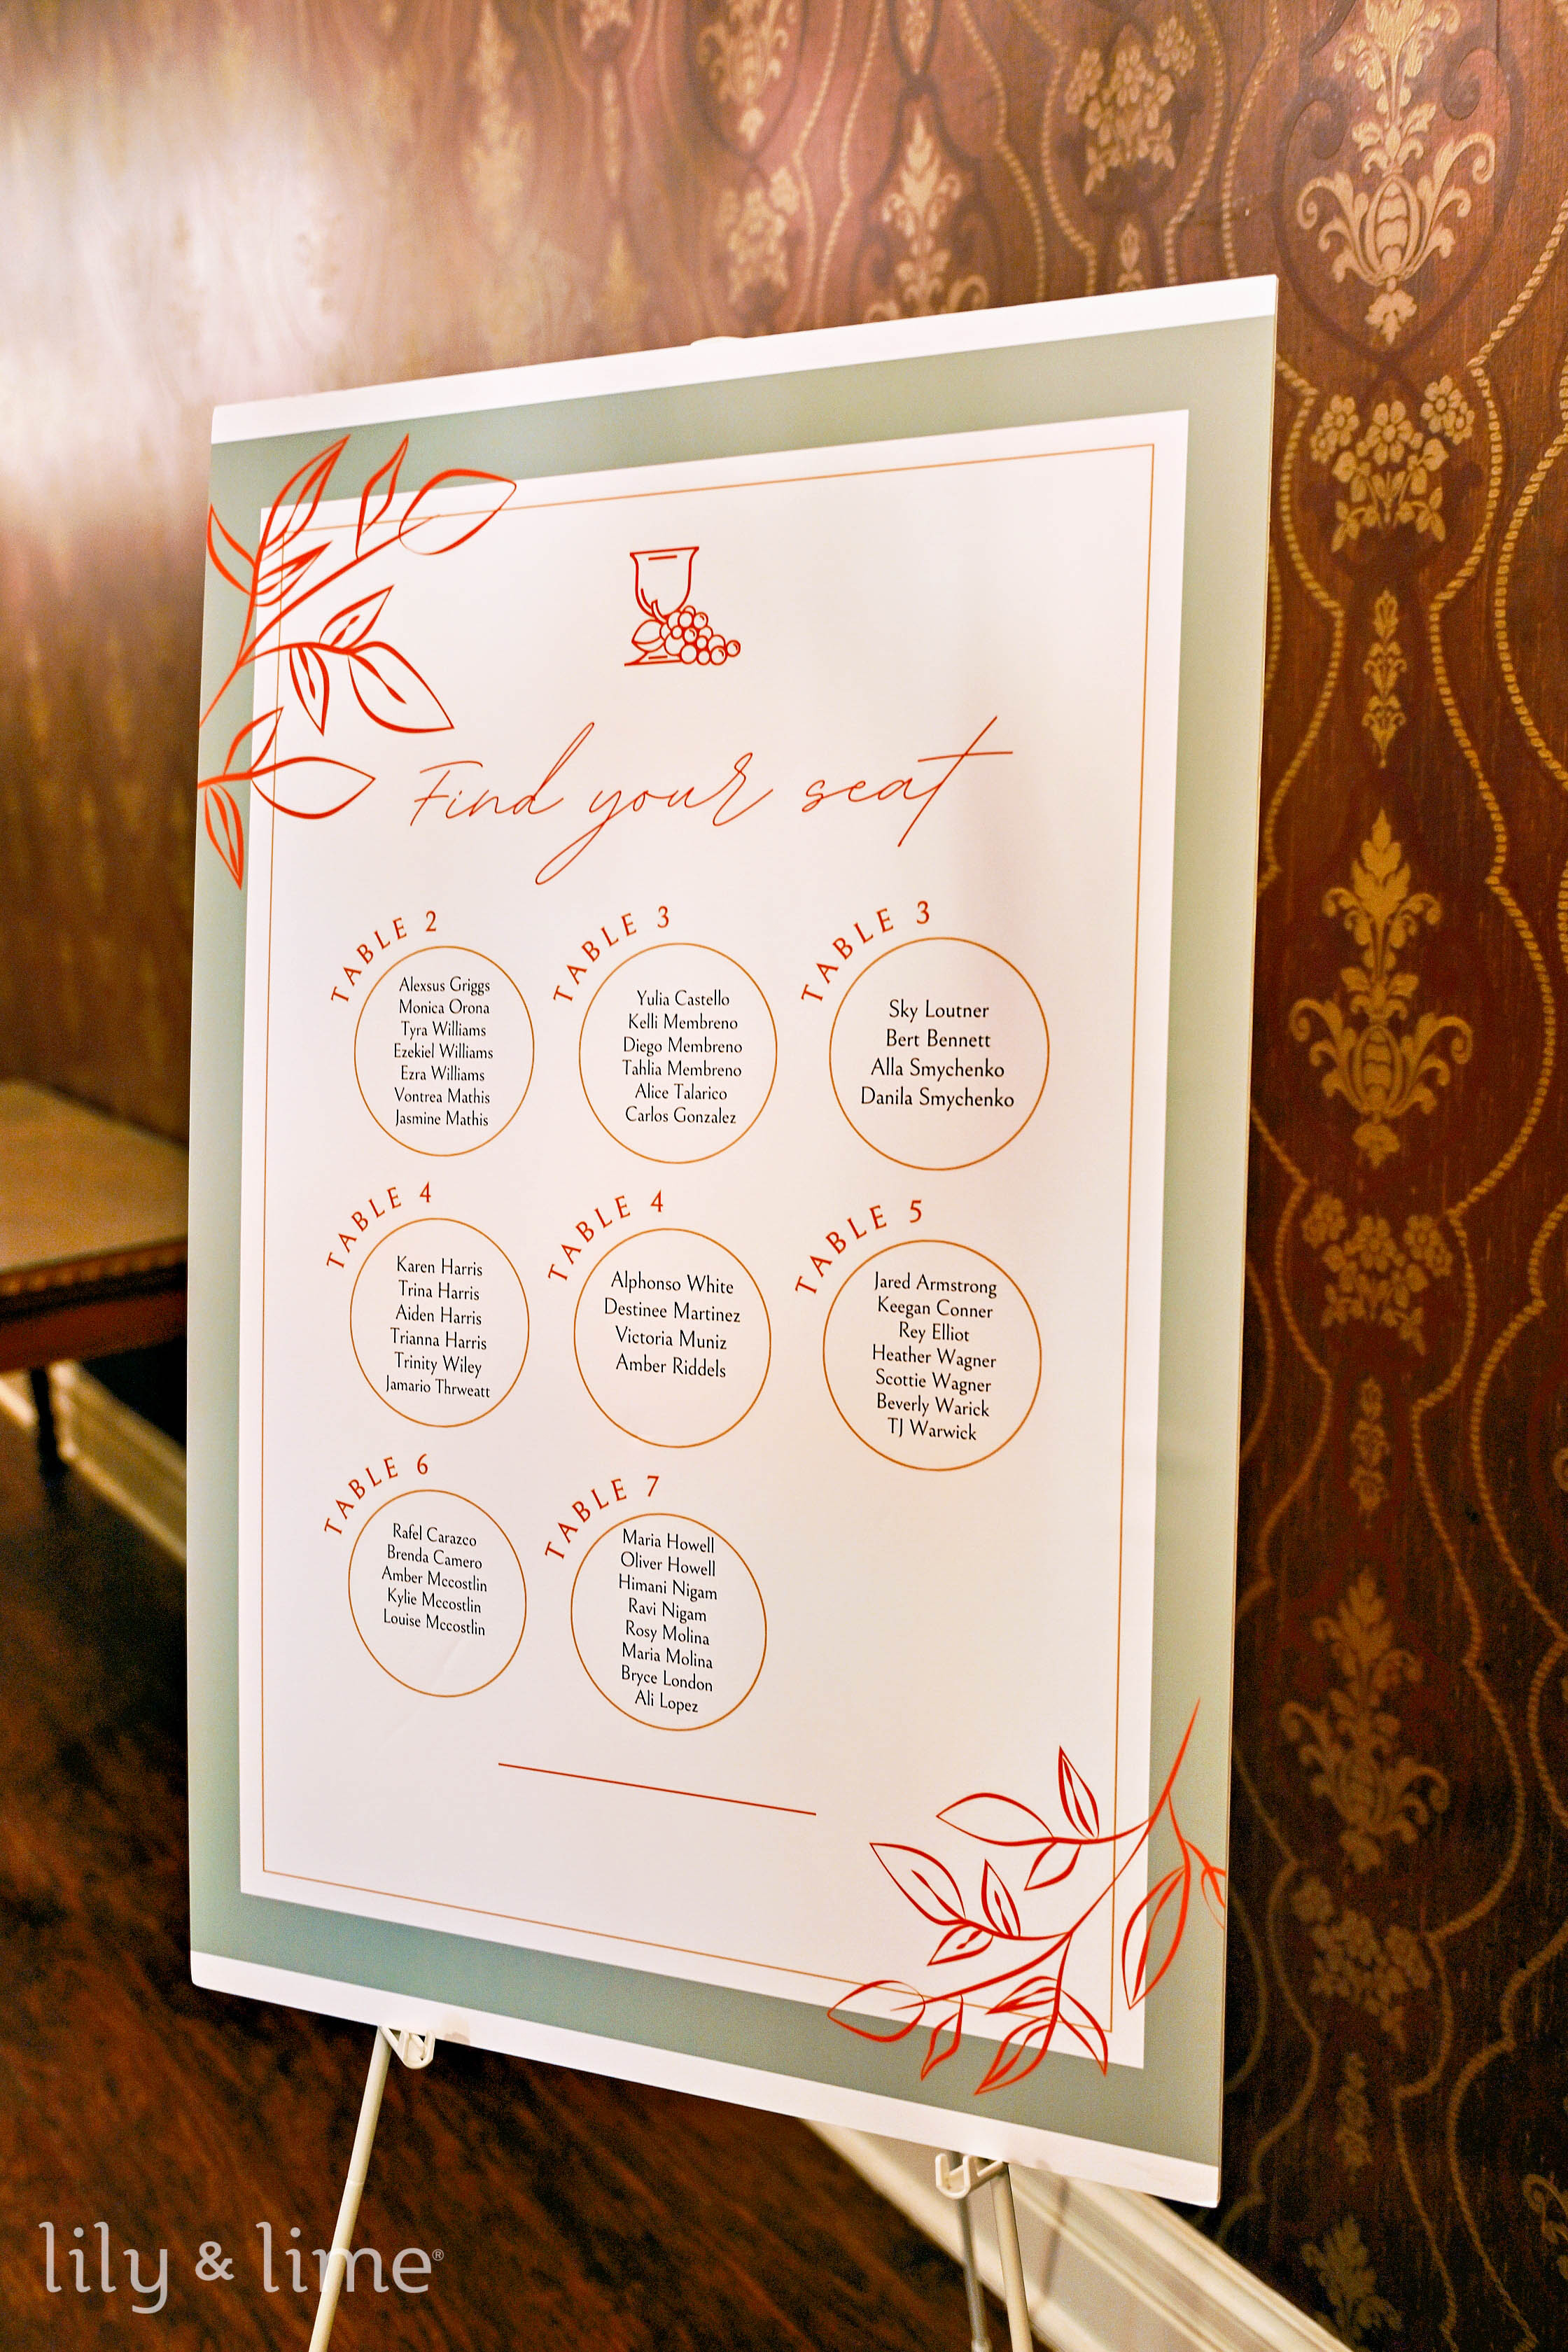 Find your seat
TABLE 2
Alexsus Griggs
Monica Orona
Tyra Williams
Ezekiel Williams
Ezra Williams
Vontrea Mathis
Jasmine Mathis
TABLE 3
Yulia Castello
Kelli Membreno
Diego Membreno
Tahlia Membreno
Alice Talarico
Carlos Gonzalez
TABLE 3
Sky Loutner
Bert Bennett
Alla Smychenko
Danila Smychenko
TABLE 4
Karen Harris
Trina Harris
Aiden Harris
Trianna Harris
Trinity Wiley
Jamario Thrweatt
TABLE 4
Alphonso White
Destinee Martinez
Victoria Muniz
Amber Riddels
TABLE 5
Jared Armstrong
Keegan Conner
Rey Elliot
Heather Wagner
Scottie Wagner
Beverly Warick
TJ Warwick
TABLE 6
Rafel Carazco
Brenda Camero
Amber Mccostlin
Kylie Mccostlin
Louise Mccostlin
TABLE 7
Maria Howell
Oliver Howell
Himani Nigam
Ravi Nigam
Rosy Molina
Maria Molina
Bryce London
Ali Lopez
lily & lime®